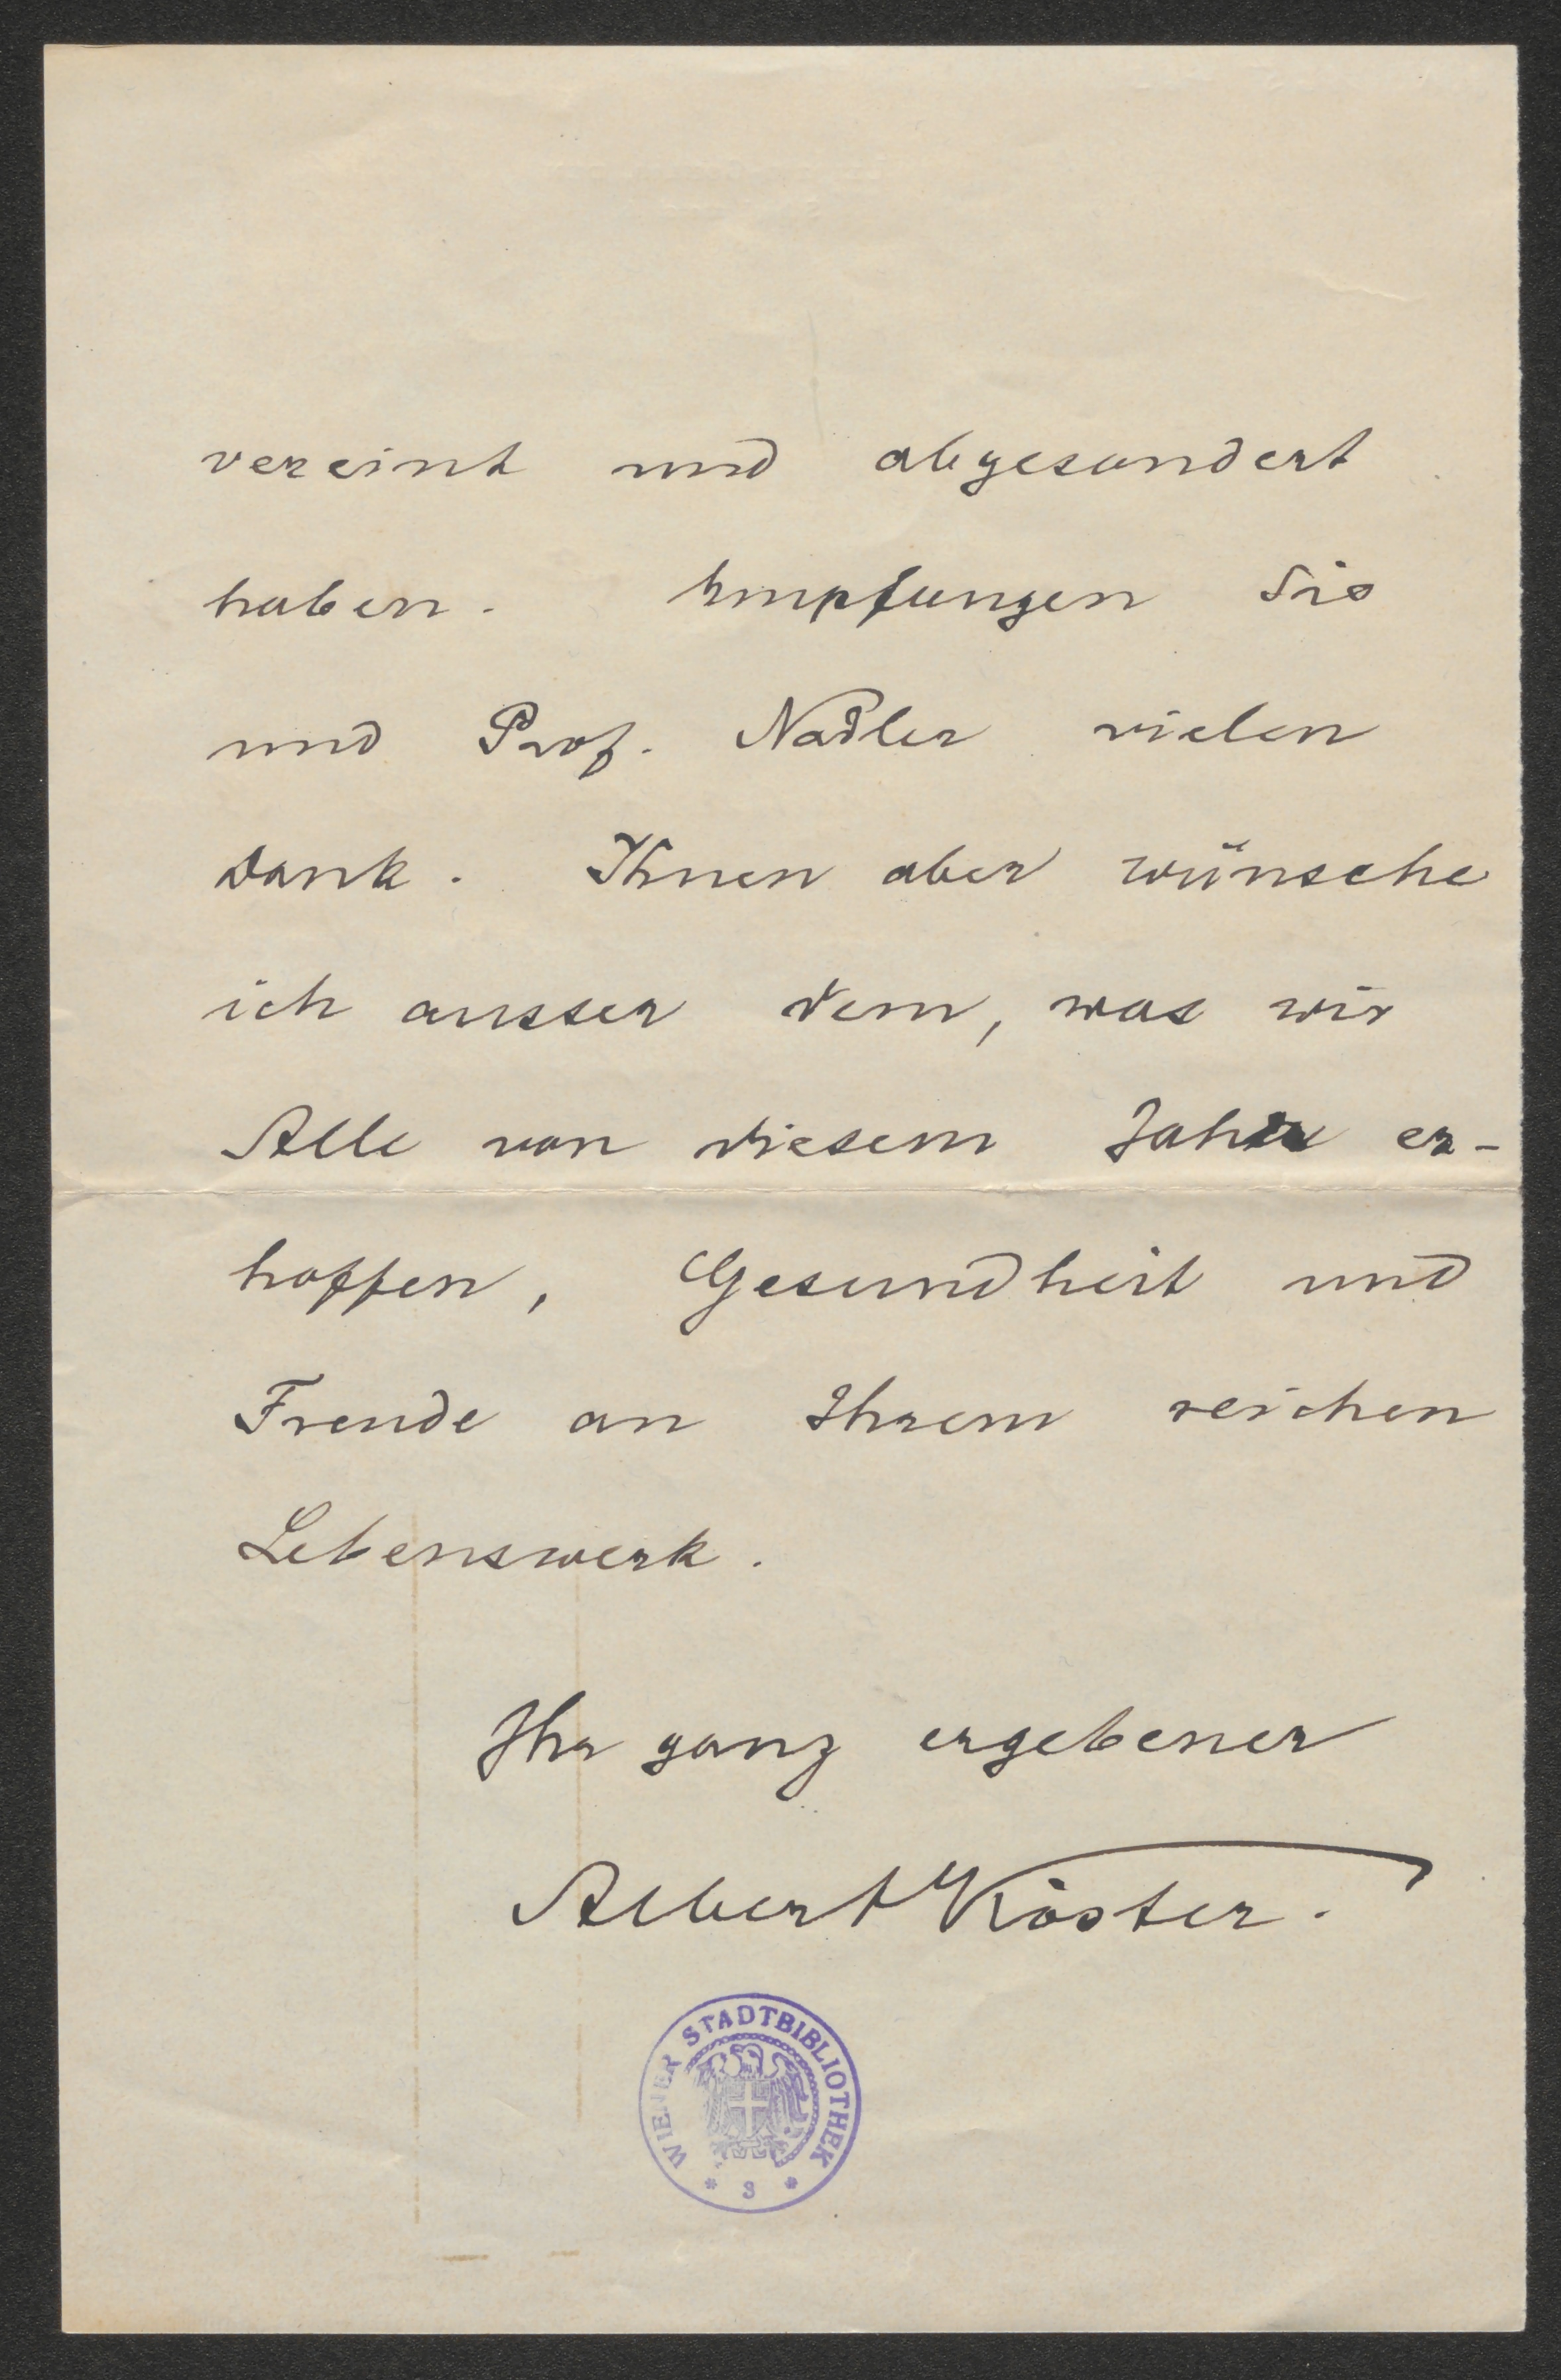 vereint und abgesondert
haben. Empfangen Sie
und Prof. Nadler vielen
Dank. Ihnen aber wünsche
ich ausser dem, was wir
Alle von diesem Jahre er-
hoffen, Gesundheit und
Freude an Ihrem reichen
Lebenswerk.
Ihr ganz ergebener
Albert Köster.
WIENER STADTBIBLIOTHEK
* 3 *